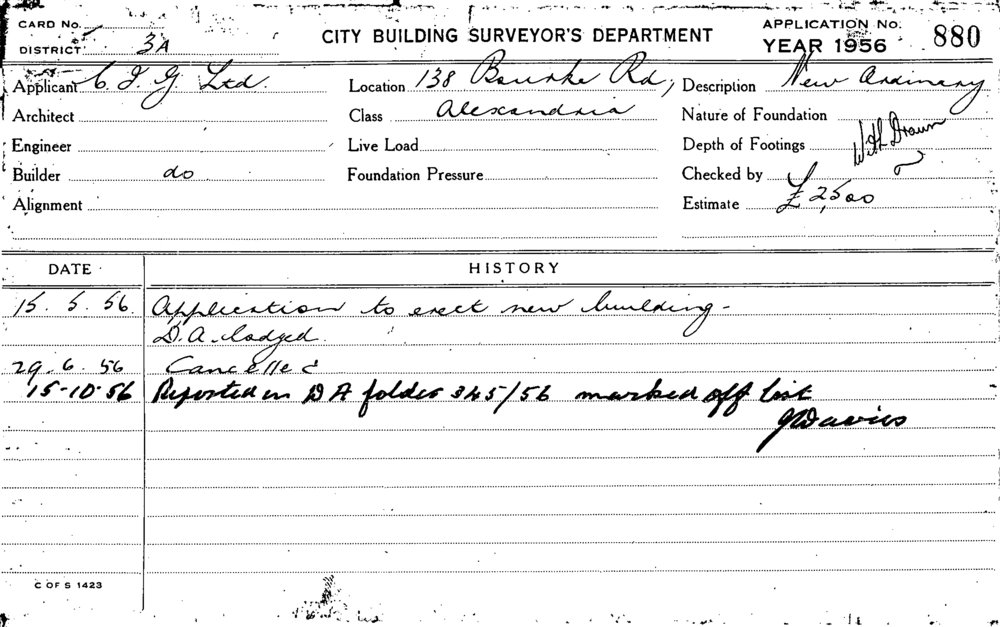 CARD No.
DISTRICT 3A
CITY BUILDING SURVEYOR'S DEPARTMENT
APPLICATION No.
YEAR 1956
880
Applicant C. I. G. Ltd.
Location 138 Bourke Rd,
Description New Ordinary
Architect
Class Alexandria
Nature of Foundation
Engineer
Live Load
Depth of Footings
With Drawn
Builder do
Foundation Pressure
Checked by
Alignment
Estimate £2,500
DATE
HISTORY
15. 5. 56. Application to erect new building -
D.A. lodged.
29. 6. 56 Cancelled
15-10-56 Reported in DA folder 345/56 marked off list
JDavies
C OF S 1423